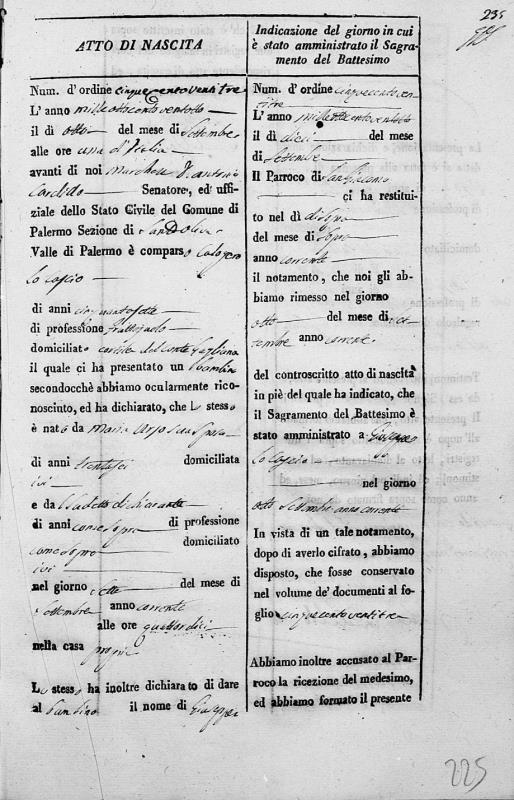 235
ATTO DI NASCITA
Num. d'ordine cinquecentoventitre
L'anno milleottocentoventotto
il dì otto del mese di Settembre
alle ore una d'Italia
avanti di noi Marchese D. Antonio
Cardillo Senatore, ed uffi-
ziale dello Stato Civile del Comune di
Palermo Sezione di
Valle di Palermo è comparso Calogero
lo Cascio
di anni cinquantasette
di professione
domiciliato cortile del conte
il quale ci ha presentato un bambino
secondocchè abbiamo ocularmente rico-
nosciuto, ed ha dichiarato, che lo stesso
è nato da Maria sua sposa
di anni trentasei domiciliata
ivi
e da
di anni come sopra di professione
come sopra domiciliato
ivi
nel giorno sette del mese di
settembre anno corrente
alle ore quattordici
nella casa propria
Lo stesso ha inoltre dichiarato di dare
al bambino il nome di Giuseppe
Indicazione del giorno in cui
è stato amministrato il Sagra-
mento del Battesimo
Num. d'ordine cinquecentoven-
titre
L'anno milleottocentoventotto
il dì dieci del mese
di Settembre
Il Parroco di
ci ha restitui-
to nel dì di sopra
del mese di sopra
anno corrente
il notamento, che noi gli ab-
biamo rimesso nel giorno
otto del mese di set-
tembre anno corrente
del controscritto atto di nascità
in piè del quale ha indicato, che
il Sagramento del Battesimo è
stato amministrato a Giuseppe
lo Cascio
nel giorno
otto settembre anno corrente
In vista di un tale notamento,
dopo di averlo cifrato, abbiamo
disposto, che fosse conservato
nel volume de' documenti al fo-
glio cinquecentoventitre
Abbiamo inoltre accusato al Par-
roco la ricezione del medesimo,
ed abbiamo formato il presente
225